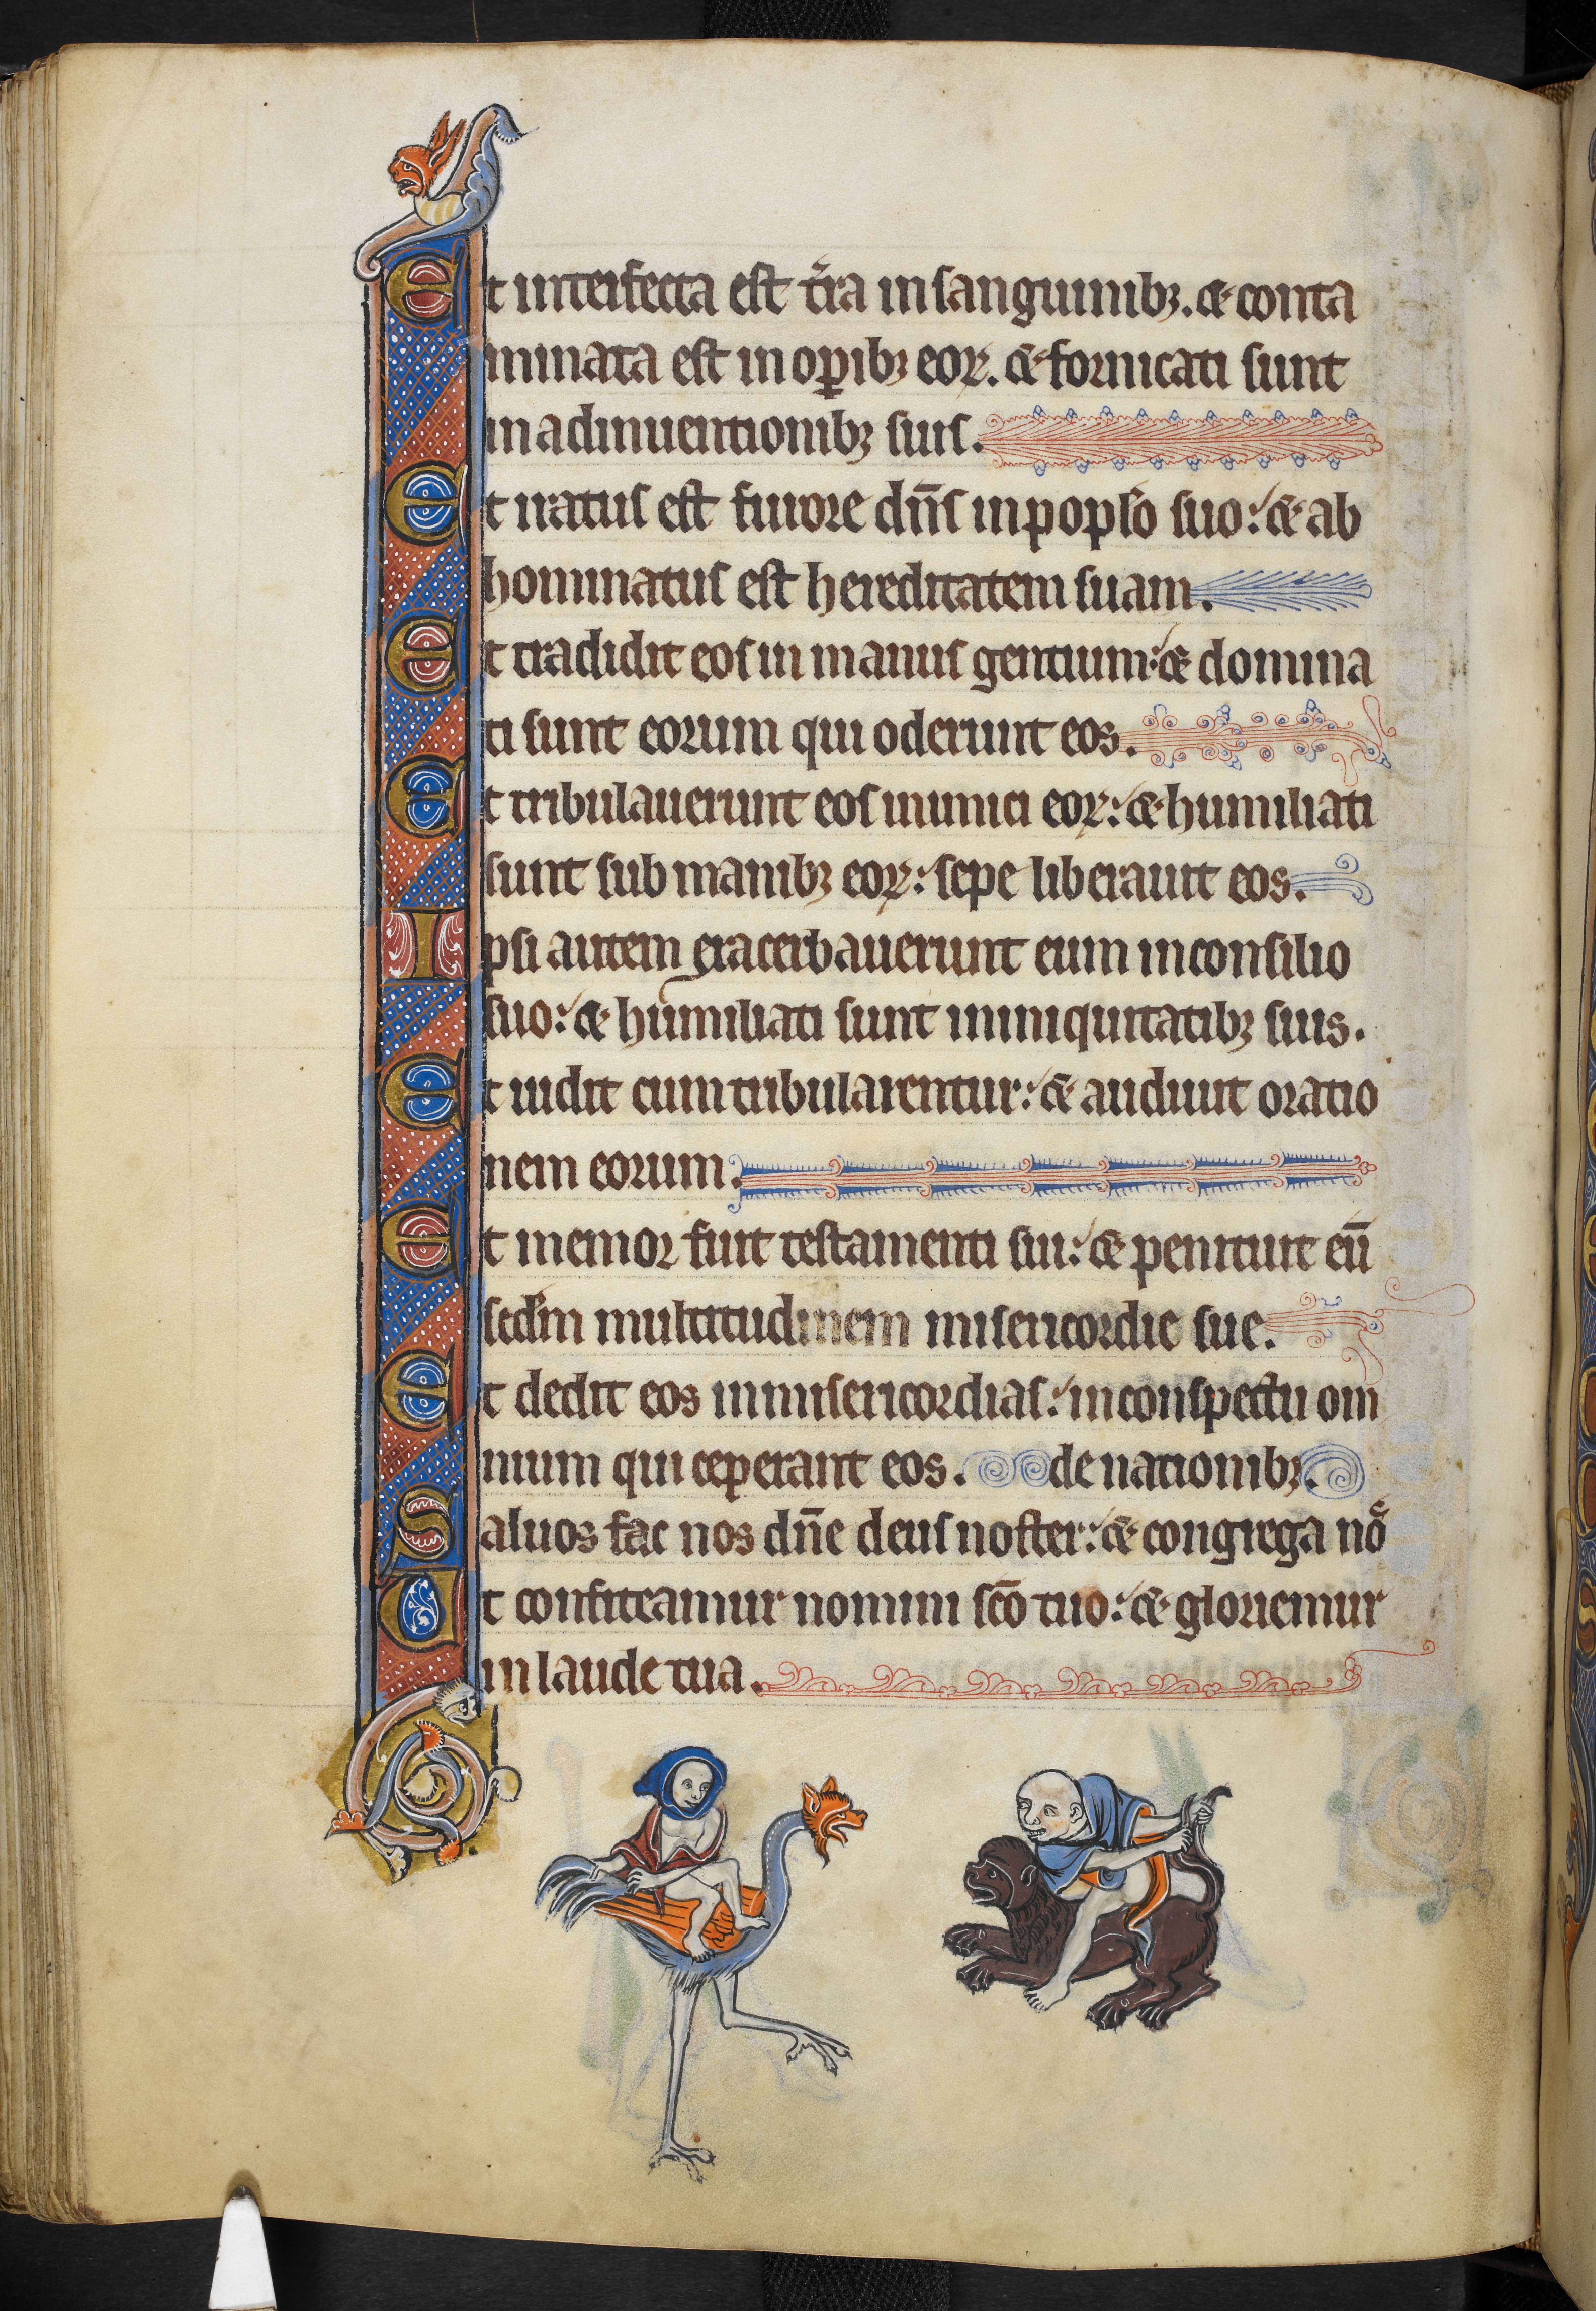 Et interfecta est t̃ra in sanguinibꝫ. ⁊ conta
minata est in oꝑibꝫ eoꝝ. ⁊ fornicati sunt
in adinuentionibꝫ suis.
Et iratus est furore dn̄s in popl̄o suo: ⁊ ab
hominatus est hereditatem suam.
Et tradidit eos in manus gentium: ⁊ domina
ti sunt eorum qui oderunt eos.
Et tribulauerunt eos inimici eoꝝ: ⁊ humiliati
sunt sub manibꝫ eoꝝ: sepe liberauit eos.
Ipsi autem exacerbauerunt eum in consilio
suo: ⁊ humiliati sunt in iniquitatibꝫ suis.
Et uidit cum tribularentur: ⁊ audiuit oratio
nem eorum.
Et memor fuit testamenti sui: ⁊ penituit eū
scd̄m multitudinem misericordie sue.
Et dedit eos in misericordias: in conspectu om
nium qui ceperant eos. de nationibꝫ.
Saluos fac nos dn̄e deus noster: ⁊ congrega noͤ
Ut confiteamur nomini sc̄o tuo: ⁊ gloriemur
in laude tua.